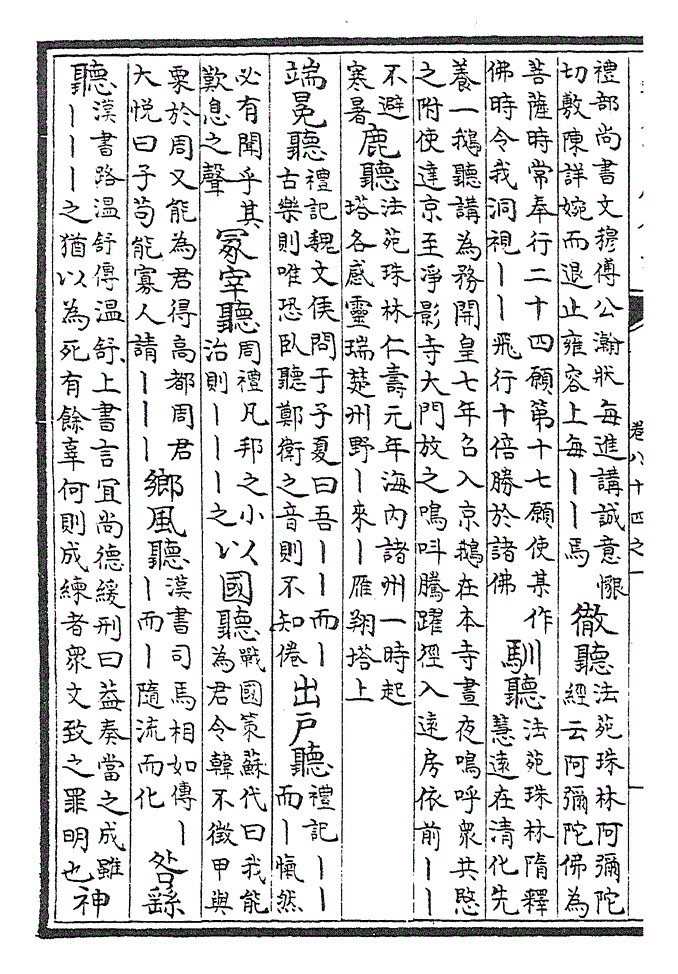 禮部尚書文穆傅公瀚狀每進講誠意懇
切敷陳詳婉而退止雍容上每丨丨焉
徹聽
法苑珠林阿彌陀
經云阿彌陀佛為
菩薩時常奉行二十四願第十七願使某作
佛時令我洞視丨丨飛行十倍勝於諸佛
馴聽
法苑珠林隋釋
慧遠在清化先
養一鵝聽講為務開皇七年召入京鵝在本寺晝夜鳴呼眾共愍
之附使達京至淨影寺大門放之鳴叫騰躍徑入遠房依前丨丨
不避
寒暑
鹿聽
法苑珠林仁壽元年海內諸州一時起
塔各感靈瑞楚州野丨來丨雁翔塔上
端冕聽
禮記魏文侯問于子夏曰吾丨丨而丨
古樂則唯恐臥聽鄭衛之音則不知倦
出戶聽
禮記丨丨
而丨愾然
必有聞乎其
歎息之聲
冢宰聽
周禮凡邦之小以
治則丨丨丨之以
國聽
戰國策蘇代曰我能
為君令韓不徵甲與
粟於周又能為君得高都周君
大悅曰子苟能寡人請丨丨丨
鄉風聽
漢書司馬相如傳丨
丨而丨隨流而化
咎繇
聽
漢書路溫舒傳溫舒上書言宜尚德緩刑曰蓋奏當之成雖
丨丨丨之猶以為死有餘辜何則成練者眾文致之罪明也
神
卷八十四之一
一